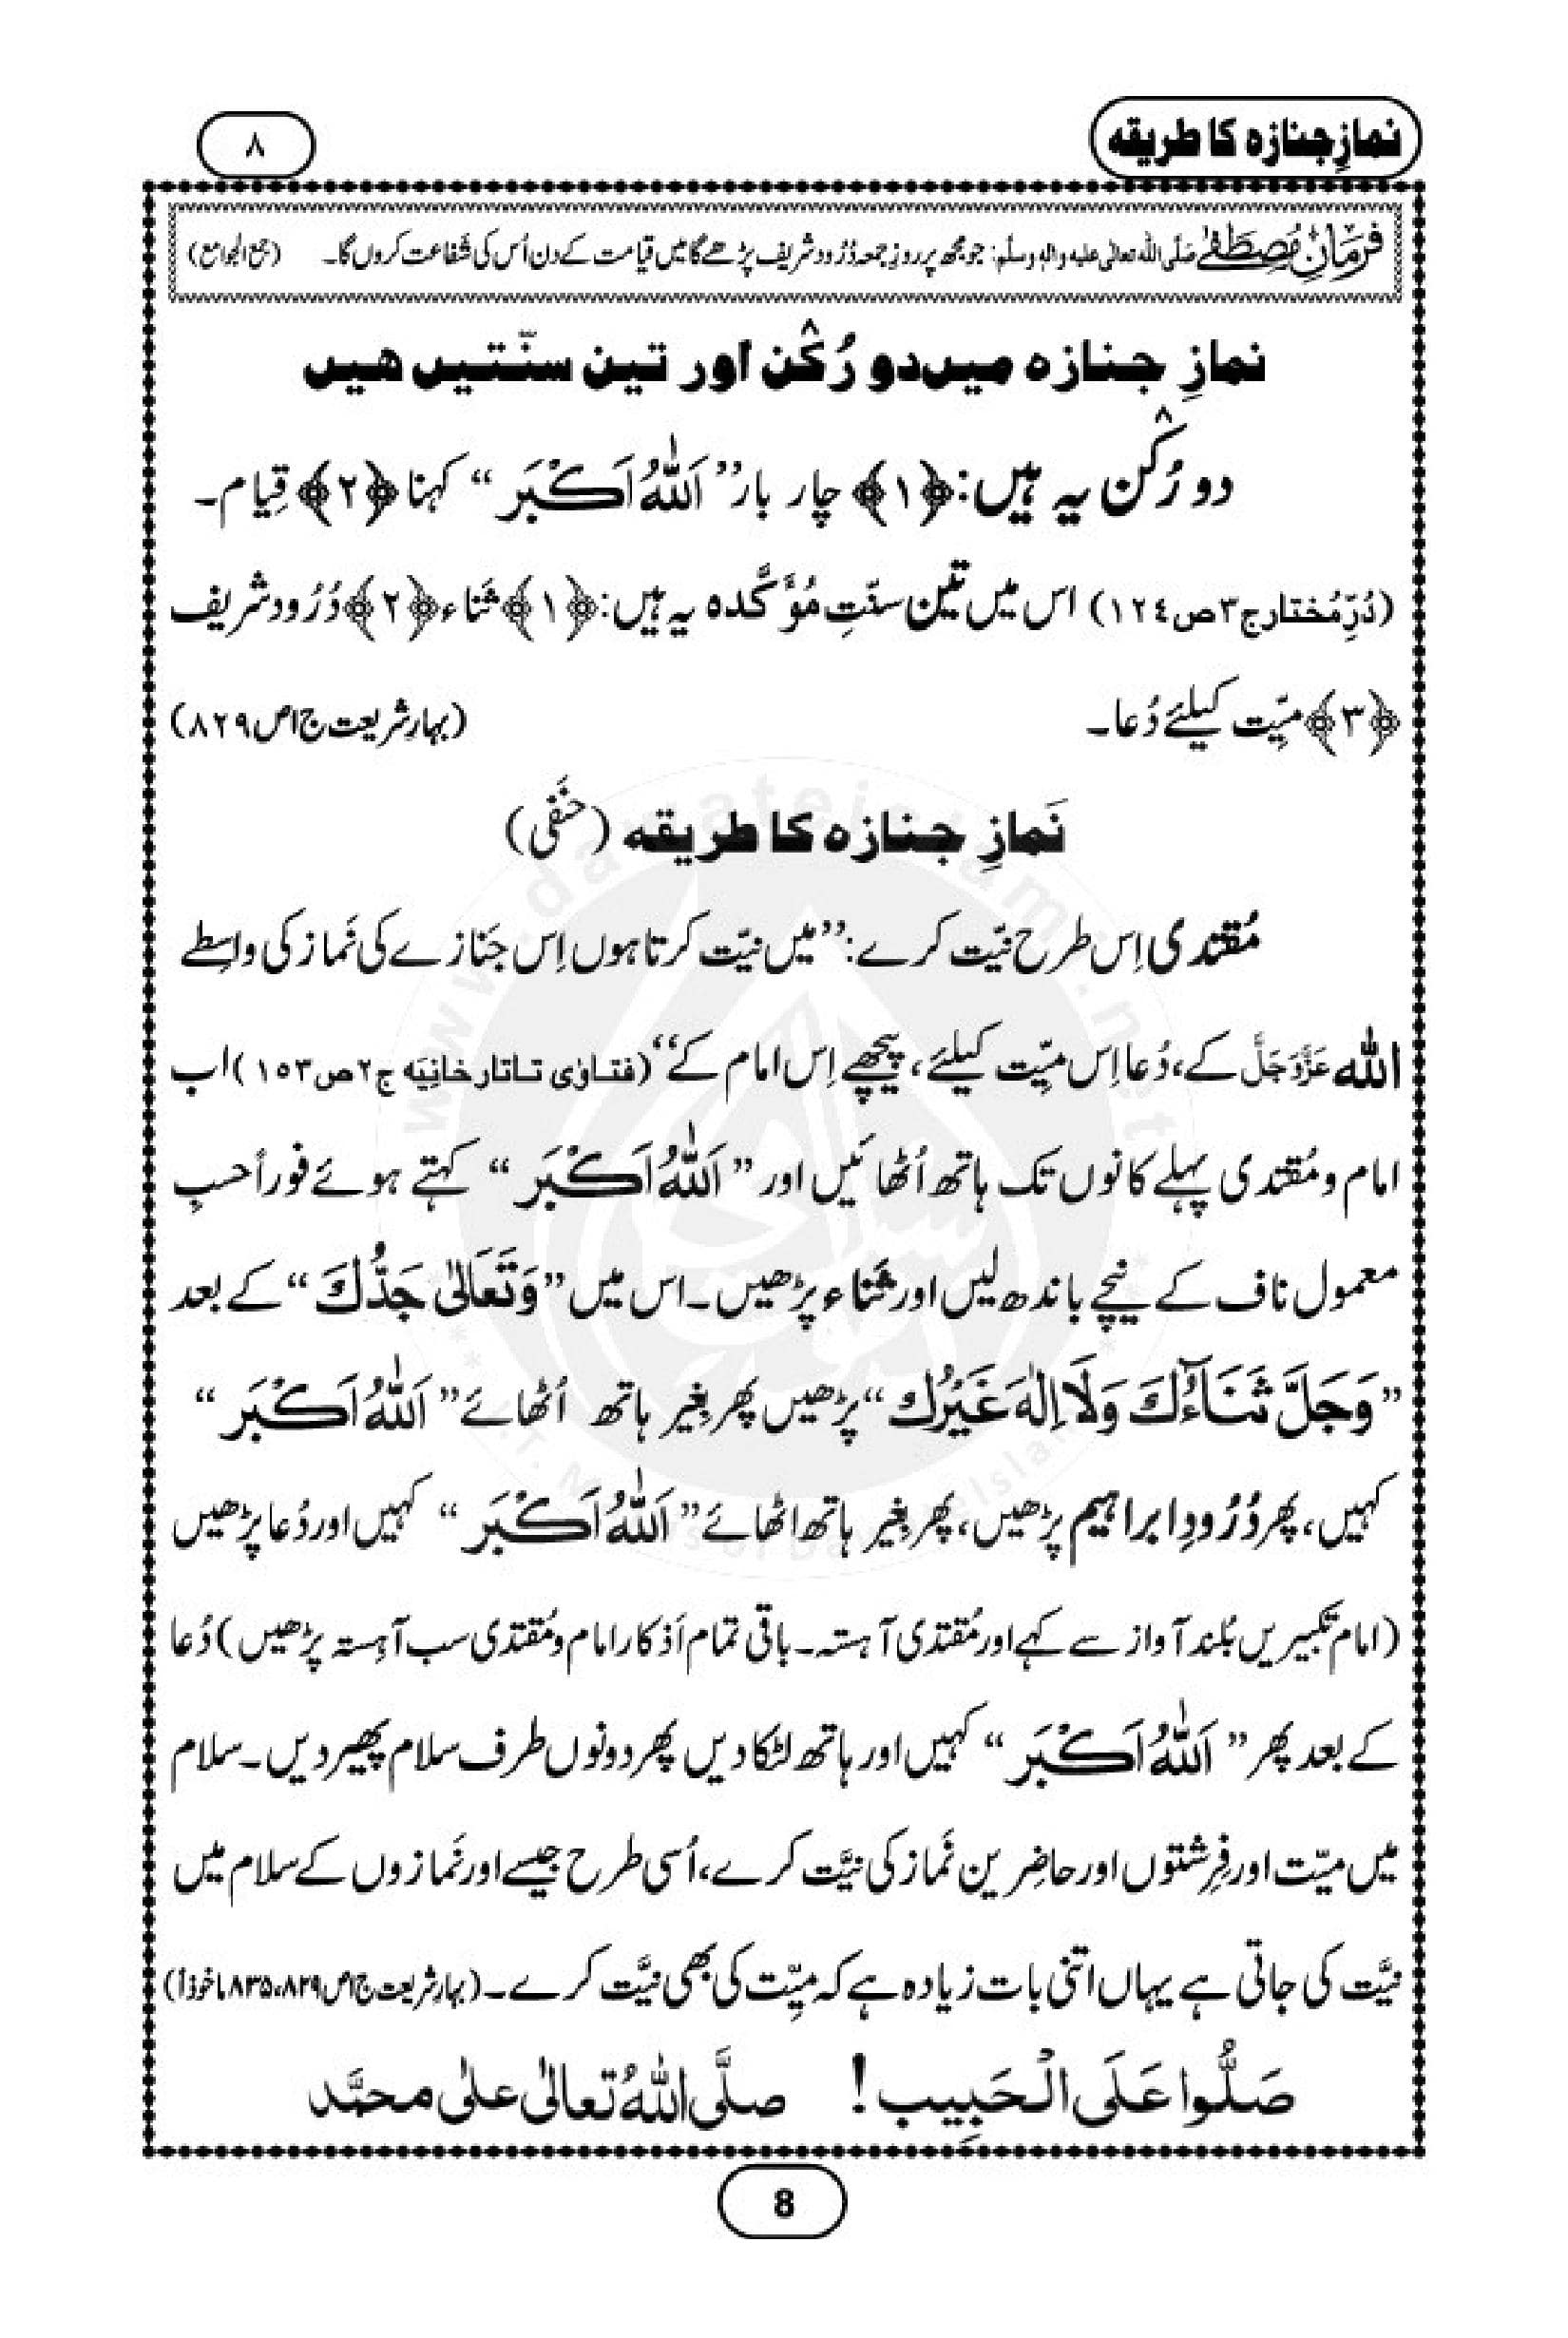 نمازِ جنازہ کا طریقہ
۸
فرمانِ مصطفےٰ صَلَّی اللہ تعالٰی علیہ والہٖ وسلَّم: جو مجھ پر روزِ جمعہ دُرُود شریف پڑھے گا میں قیامت کے دن اُس کی شَفاعت کروں گا۔ (جمع الجوامع)
نمازِ جنازہ میں دو رُکْن اور تین سنّتیں ہیں
دو رُکْن یہ ہیں: ﴿۱﴾ چار بار ”اَللّٰہُ اَکْبَر“ کہنا ﴿۲﴾ قِیام۔
(دُرِّمُختار ج۳ ص۱۲٤) اس میں تین سنّتِ مُؤَکَّدہ یہ ہیں: ﴿۱﴾ ثَناء ﴿۲﴾ دُرُود شریف
﴿۳﴾ میِّت کیلئے دُعا۔ (بہارِ شریعت ج۱ ص۸۲۹)
نَمازِ جنازہ کا طریقہ (حَنَفی)
مُقتدی اِس طرح نیّت کرے: ”میں نیّت کرتا ہوں اِس جنازے کی نَماز کی واسِطے
اللہ عَزَّوَجَلَّ کے، دُعا اِس میِّت کیلئے، پیچھے اِس امام کے“ (فتاوٰی تاتارخانِیَہ ج۲ ص۱۵۳) اب
امام و مُقتدی پہلے کانوں تک ہاتھ اُٹھائیں اور ”اَللّٰہُ اَکْبَر“ کہتے ہوئے فوراً حسبِ
معمول ناف کے نیچے باندھ لیں اور ثَناء پڑھیں۔ اس میں ”وَتَعَالٰی جَدُّكَ“ کے بعد
”وَجَلَّ ثَنَاءُكَ وَلَا اِلٰہَ غَیْرُكَ“ پڑھیں پھر بِغیر ہاتھ اُٹھائے ”اَللّٰہُ اَکْبَر“
کہیں، پھر دُرُودِ ابراہیم پڑھیں، پھر بِغیر ہاتھ اٹھائے ”اَللّٰہُ اَکْبَر“ کہیں اور دُعا پڑھیں
(امام تکبیریں بُلند آواز سے کہے اور مُقتدی آہستہ۔ باقی تمام اَذکار امام و مُقتدی سب آہِستہ پڑھیں) دُعا
کے بعد پھر ”اَللّٰہُ اَکْبَر“ کہیں اور ہاتھ لٹکا دیں پھر دونوں طرف سلام پھیر دیں۔ سلام
میں میّت اور فِرِشتوں اور حاضِرین نَماز کی نیَّت کرے، اُسی طرح جیسے اور نَمازوں کے سلام میں
نیَّت کی جاتی ہے یہاں اتنی بات زیادہ ہے کہ میِّت کی بھی نیَّت کرے۔ (بہارِ شریعت ج۱ ص۸۲۹، ۸۳۵ ماخوذاً)
صَلُّوا عَلَی الْحَبِیب! صلَّی اللّٰہُ تعالٰی علٰی محمَّد
8